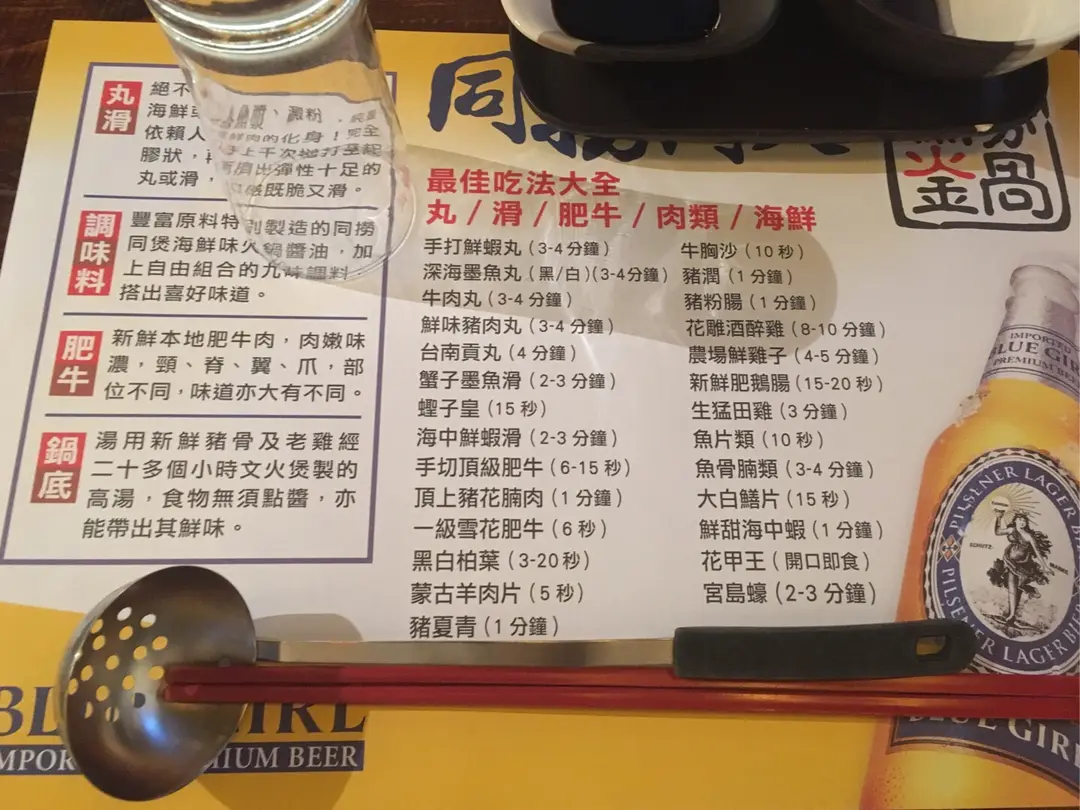 同撈同
火鍋
丸滑
絕不
海鮮
依賴人
膠狀，
丸或滑，
、澱粉
的化身！完全
上千次拋打至起
擠出彈性十足的
既脆又滑。
調味料
豐富原料特別製造的同撈
同煲海鮮味火鍋醬油，加
上自由組合的九味調料，
搭出喜好味道。
肥牛
新鮮本地肥牛肉，肉嫩味
濃，頸、脊、翼、爪，部
位不同，味道亦大有不同。
鍋底
湯用新鮮豬骨及老雞經
二十多個小時文火煲製的
高湯，食物無須點醬，亦
能帶出其鮮味。
最佳吃法大全
丸/滑/肥牛/肉類/海鮮
手打鮮蝦丸(3-4分鐘)
深海墨魚丸(黑/白)(3-4分鐘)
牛肉丸(3-4分鐘)
鮮味豬肉丸(3-4分鐘)
台南貢丸(4分鐘)
蟹子墨魚滑(2-3分鐘)
蟶子皇(15秒)
海中鮮蝦滑(2-3分鐘)
手切頂級肥牛(6-15秒)
頂上豬花腩肉(1分鐘)
一級雪花肥牛(6秒)
黑白柏葉(3-20秒)
蒙古羊肉片(5秒)
豬夏青(1分鐘)
牛胸沙(10秒)
豬潤(1分鐘)
豬粉腸(1分鐘)
花雕酒醉雞(8-10分鐘)
農場鮮雞子(4-5分鐘)
新鮮肥鵝腸(15-20秒)
生猛田雞(3分鐘)
魚片類(10秒)
魚骨腩類(3-4分鐘)
大白鱔片(15秒)
鮮甜海中蝦(1分鐘)
花甲王(開口即食)
宮島蠔(2-3分鐘)
IMPORTED
BLUE GIRL
PREMIUM BEER
PILSENER LAGER BEER
PILSENER LAGER BEER
BLUE GIRL
BLUE GIRL
IMPORTED PREMIUM BEER